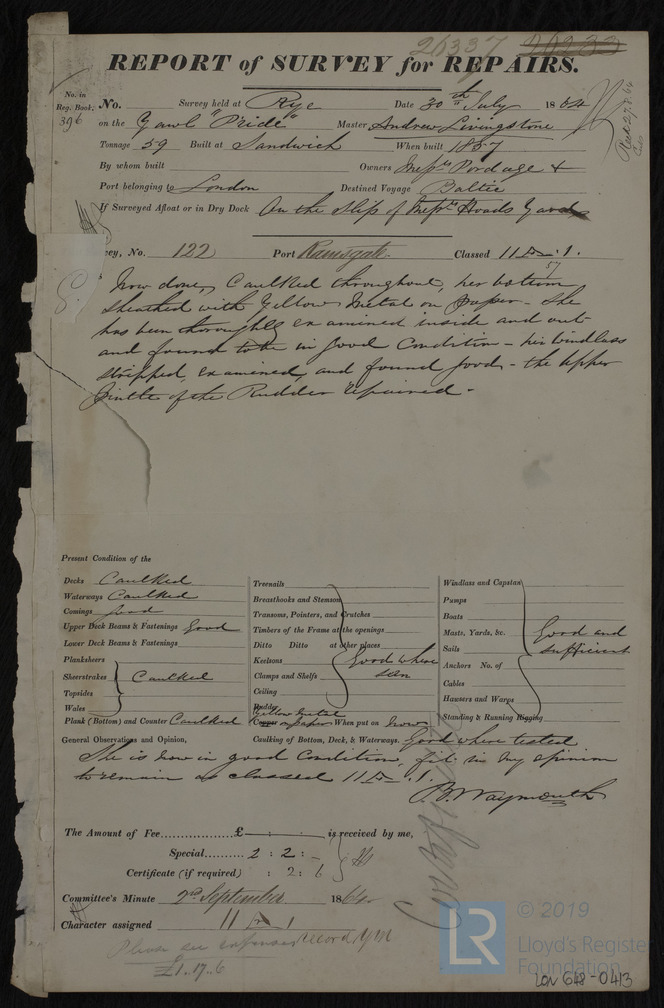 26337
REPORT of SURVEY for REPAIRS.
No. in Reg. Book. 396 No. Survey held at Rye Date 30th July 1864
on the Yawl "Pride" Master Andrew Livingstone
Tonnage 59 Built at Sandwich When built 1857
By whom built Owners Messrs Pordage &
Port belonging to London Destined Voyage Baltic
If Surveyed Afloat or in Dry Dock On the Slip of Messrs Hoads Yard
vey, No. 122 Port Ramsgate Classed 11 A 1.
57
Now done, Caulked throughout, her bottom
sheathed with Yellow Metal on paper - She
has been thoroughly examined inside and out
and found to be in good Condition - her windlass
stripped, examined, and found good - the Upper
Pintle of the Rudder repaired -
Present Condition of the
Decks Caulked
Waterways Caulked
Comings Good
Upper Deck Beams & Fastenings Good
Lower Deck Beams & Fastenings
Planksheers
Sheerstrakes
Caulked
Topsides
Wales
Plank (Bottom) and Counter Caulked
Treenails
Breasthooks and Stemson
Transoms, Pointers, and Crutches
Timbers of the Frame at the openings
Ditto Ditto at other places
Keelsons
Good where
seen
Clamps and Shelfs
Ceiling
Rudder
Yellow Metal
Copper on paper When put on Now
Windlass and Capstan
Pumps
Boats
Masts, Yards, &c.
Good and
sufficient
Sails
Anchors No. of
Cables
Hawsers and Warps
Standing & Running Rigging
General Observations and Opinion, Caulking of Bottom, Deck, & Waterways. Good where tested
She is now in good Condition, fit in my opinion
to remain as classed 11 A .1.
B. Waymouth
The Amount of Fee £ is received by me,
Special 2 : 2 : -
Certificate (if required) : 2 : 6
Committee's Minute 2nd September 1864
Character assigned 11 A 1
Please see expenses record YM
£1.17.6
© 2019
LR
Lloyd's Register
Foundation
LON 648-0413